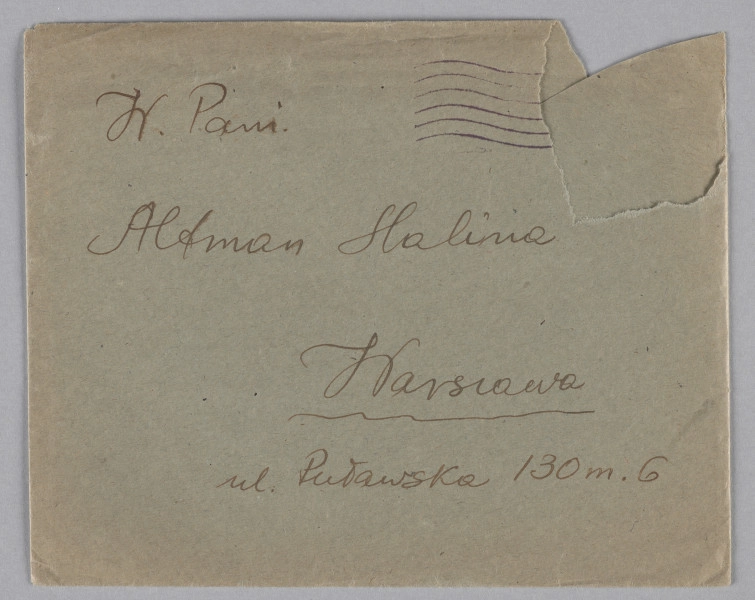 W. Pani.
Altman Halina
Warszawa
ul. Puławska 130 m. 6